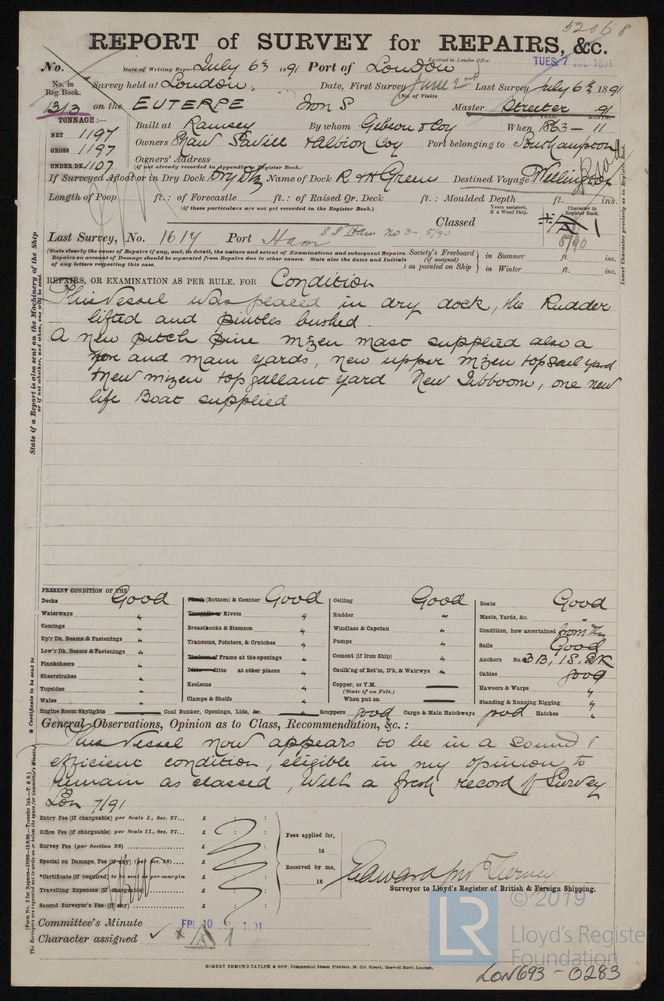 52068
REPORT of SURVEY for REPAIRS, &c.
Received in London Office.
TUES. 7 JUL 1891
No. Date of Writing Report July 6th 1891 Port of London
No. in Reg. Book. Survey held at London. Date, First Survey June 2nd Last Survey July 6th 1891
(No. of Visits
1313 on the EUTERPE Iron S Master Streater 91
TONNAGE:—
NET 1197 Built at Ramsey By whom Gibson & Coy When 1863 - 11
GROSS 1197 Owners Shaw Savill & Albion Coy Port belonging to Southampton
UNDER DK. 1107 Owners' Address
(if not already recorded in Appendix to Register Book.)
If Surveyed Afloat or in Dry Dock Dry Dk Name of Dock R & H Green Destined Voyage Wellington
Length of Poop ft.: of Forecastle ft.: of Raised Qr. Deck ft.: Moulded Depth ft. ins.
(if these particulars are not yet recorded in the Register Book.)
Classed
Years assigned, if a Wood Ship.
Character in Register Book.
5/90
Last Survey, No. 1614 Port Ham
(State clearly the cause of Repairs if any, and, in detail, the nature and extent of Examinations and subsequent Repairs.
Repairs on account of Damage should be separated from Repairs due to other causes. State also the dates and Initials
of any letters respecting this case.
Society's Freeboard (if assigned) as painted on Ship
in Summer ft. ins.
in Winter ft. ins.
REPAIRS, OR EXAMINATION AS PER RULE, FOR Condition
This Vessel was placed in dry dock, the Rudder
lifted and pintles bushed.
A new pitch pine mizen mast supplied also a
and main yards, new upper mizen topsail yard
new mizen topgallant yard New Jibboom, one new
life Boat supplied
State if a Report is also sent on the Machinery of the Ship
Insert Character precisely as in Register Book.
PRESENT CONDITION OF THE
Decks Good
Waterways "
Comings "
Up'r Dk. Beams & Fastenings "
Low'r Dk. Beams & Fastenings "
Planksheers
Sheerstrakes "
Topsides "
Wales "
Engine Room Skylights
(Bottom) & Counter Good
Rivets "
Breasthooks & Stemson "
Transoms, Pointers, & Crutches "
Frame at the openings "
Ditto at other places "
Keelsons "
Clamps & Shelfs "
Coal Bunker, Openings, Lids, &c.
Ceiling Good
Rudder "
Windlass & Capstan "
Pumps "
Cement (if Iron Ship) "
Caulk'g of Bot'm, D'k, & Watrwys "
Copper, or Y.M.
(State if on Felt.)
When put on
Scuppers good Cargo & Main Hatchways good
Boats Good
Masts, Yards, &c. "
Condition, how ascertained from
Sails Good
Anchors No. 3 B, 1 S, 2 K
Cables good
Hawsers & Warps "
Standing & Running Rigging "
Hatches "
General Observations, Opinion as to Class, Recommendation, &c.:
This Vessel now appears to be in a sound &
efficient condition, eligible in my opinion to
remain as classed, with a fresh record of Survey
Lon 7/91
Certificate to be sent to
Entry Fee (if chargeable) per Scale I., Sec. 27... £ : :
Office Fee (if chargeable) per Scale II., Sec. 27... £ : :
Survey Fee (per Section 28) £ : :
Special on Damage, Fee (if any) (per Sec. 28) £ : :
*Certificate (if required) to be sent as per margin
Travelling Expenses (if chargeable) £ : :
Second Surveyor's Fee (if any) £ : :
Fees applied for,
18
Received by me,
18
Surveyor to Lloyd's Register of British & Foreign Shipping.
Committee's Minute FRI 10 JUL 1891
Character assigned
ROBERT EDMUND TAYLER & SON, Commercial Steam Printers, 19, Old Street, Goswell Road, London.
© 2019
LR
Lloyd's Register
Foundation
LON693-0283